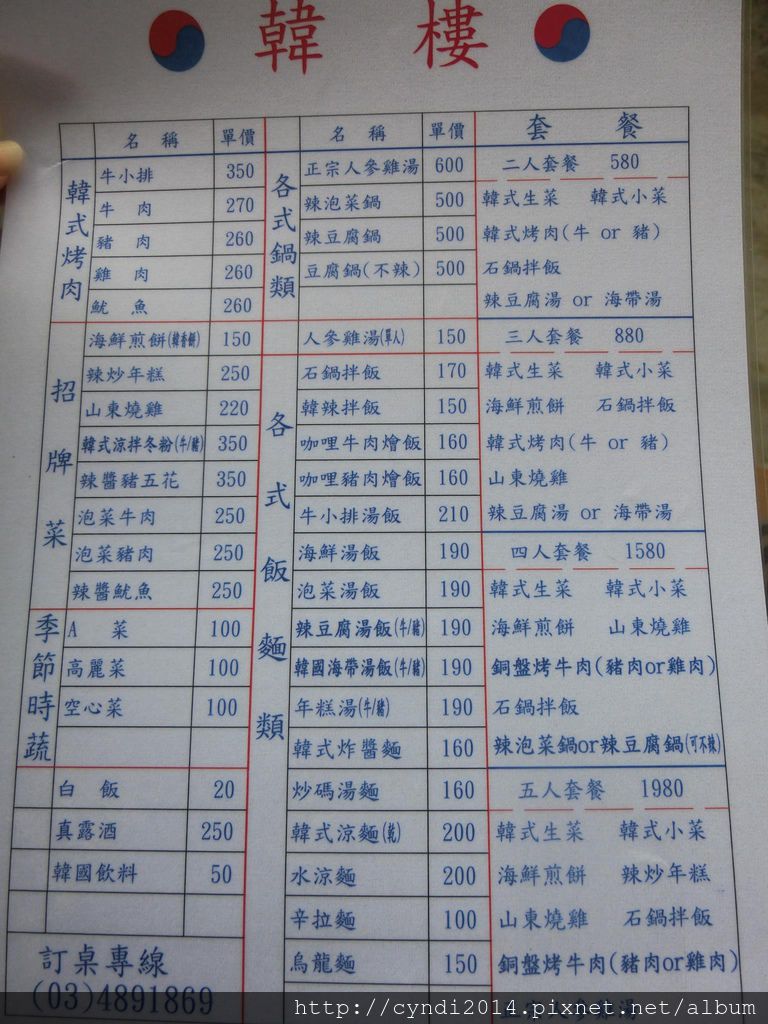 韓 樓
名 稱 單價
韓式烤肉
牛小排 350
牛 肉 270
豬 肉 260
雞 肉 260
魷 魚 260
招牌菜
海鮮煎餅(韓香餅) 150
辣炒年糕 250
山東燒雞 220
韓式涼拌冬粉(牛/豬) 350
辣醬豬五花 350
泡菜牛肉 250
泡菜豬肉 250
辣醬魷魚 250
季節時蔬
A 菜 100
高麗菜 100
空心菜 100
白 飯 20
真露酒 250
韓國飲料 50
訂桌專線
(03)4891869
名 稱 單價
各式鍋類
正宗人參雞湯 600
辣泡菜鍋 500
辣豆腐鍋 500
豆腐鍋(不辣) 500
人參雞湯(單人) 150
各式飯麵類
石鍋拌飯 170
韓辣拌飯 150
咖哩牛肉燴飯 160
咖哩豬肉燴飯 160
牛小排湯飯 210
海鮮湯飯 190
泡菜湯飯 190
辣豆腐湯飯(牛/豬) 190
韓國海帶湯飯(牛/豬) 190
年糕湯(牛/豬) 190
韓式炸醬麵 160
炒碼湯麵 160
韓式涼麵(乾) 200
水涼麵 200
辛拉麵 100
烏龍麵 150
套 餐
二人套餐 580
韓式生菜 韓式小菜
韓式烤肉(牛 or 豬)
石鍋拌飯
辣豆腐湯 or 海帶湯
三人套餐 880
韓式生菜 韓式小菜
海鮮煎餅 石鍋拌飯
韓式烤肉(牛 or 豬)
山東燒雞
辣豆腐湯 or 海帶湯
四人套餐 1580
韓式生菜 韓式小菜
海鮮煎餅 山東燒雞
銅盤烤牛肉(豬肉or雞肉)
石鍋拌飯
辣泡菜鍋or辣豆腐鍋(可不辣)
五人套餐 1980
韓式生菜 韓式小菜
海鮮煎餅 辣炒年糕
山東燒雞 石鍋拌飯
銅盤烤牛肉(豬肉or雞肉)
正宗人參雞湯
http://cyndi2014.pixnet.net/album